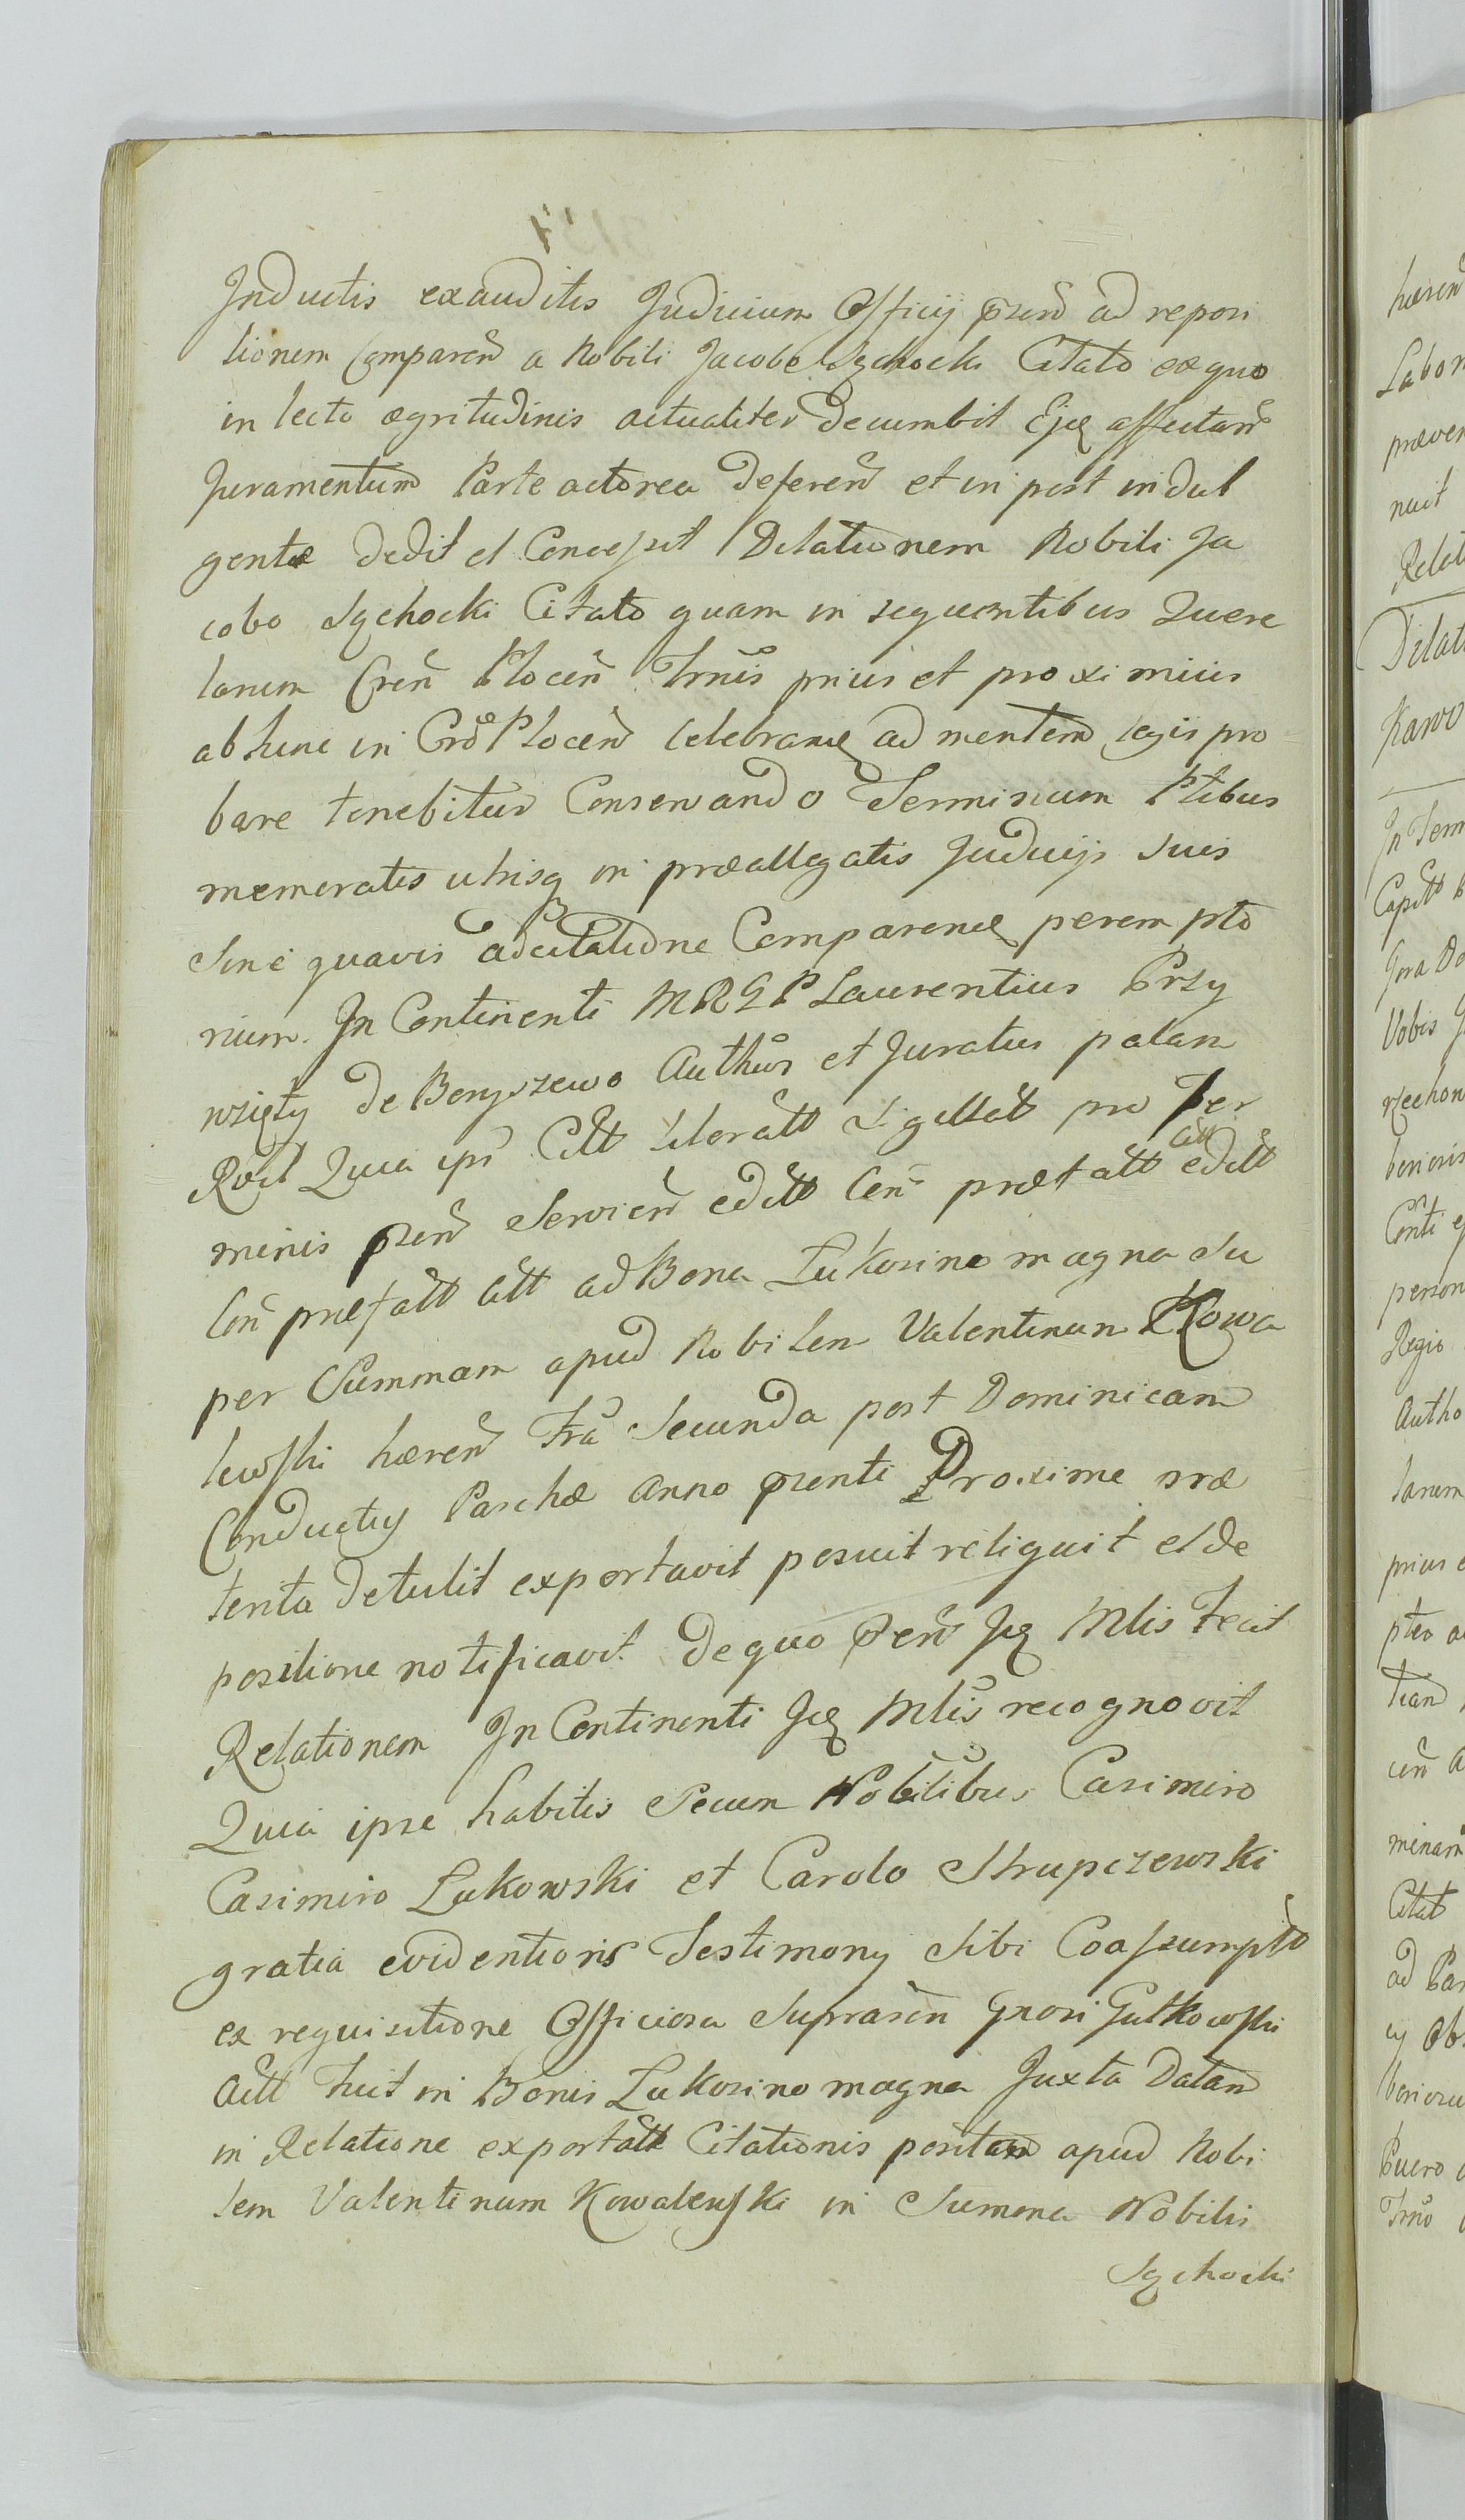 Inductis exauditis Judicium Officij pzñ ad reposi
tionem Comparen a Nobili Jacobo Sychocki Citato eo quo
in lecto ægritudinis actualiter decumbit Ejq affectan
Juramentum Parte actorea deferen et in post indul
gentæ dedit et Concessit Dilationem Nobili Ja
cobo Sychocki Citato quam in sequentibus Quere
lanum Cren Plocen Trnis prius et proximius
ab hinc in Cro Plocen celebrand ad mentem legis pro
bare tenebitur Conservando Terminum Ptibus
memoratis utrisq in præallegatis Judicijs suis
sine quavis adcitatione Comparend perempto
rium. In Continenti MRGP Laurentius Przy
wzięty de Boryszewo Authus et Juratus palam
Rect Quia ips Citt literatt Sigillatt pro Ter
minis pzñ Servien editt Cen præfatt citt editt
Cen præfatt att ad Bona Lukosino magna Su
per Summam apud Nobilem Valentinum Kowa
lewski hæren Fra Secunda post Dominicam
Conductus Paschæ anno pzenti Proxime præ
terita detulit exportavit posuit reliquit et de
positione notificavit. de quo pzen Jq Mlis Fecit
Relationem In Continenti Jq Mlis recognovit
Quia ipse habitis Secum Nobilibus Casimiro
Casimiro Lukowski et Carolo Strupczewski
gratia evidentioris Testimony Sibi Coassumptt
ex requisitione Officiosa Suprascn Gnosi Gutkowski
Actt Fuit in Bonis Lukosino magna Juxta Datam
in Relatione exportatt Citationis positam apud Nobi
lem Valentinum Kowalewski in Summa Nobilis
Sychocki